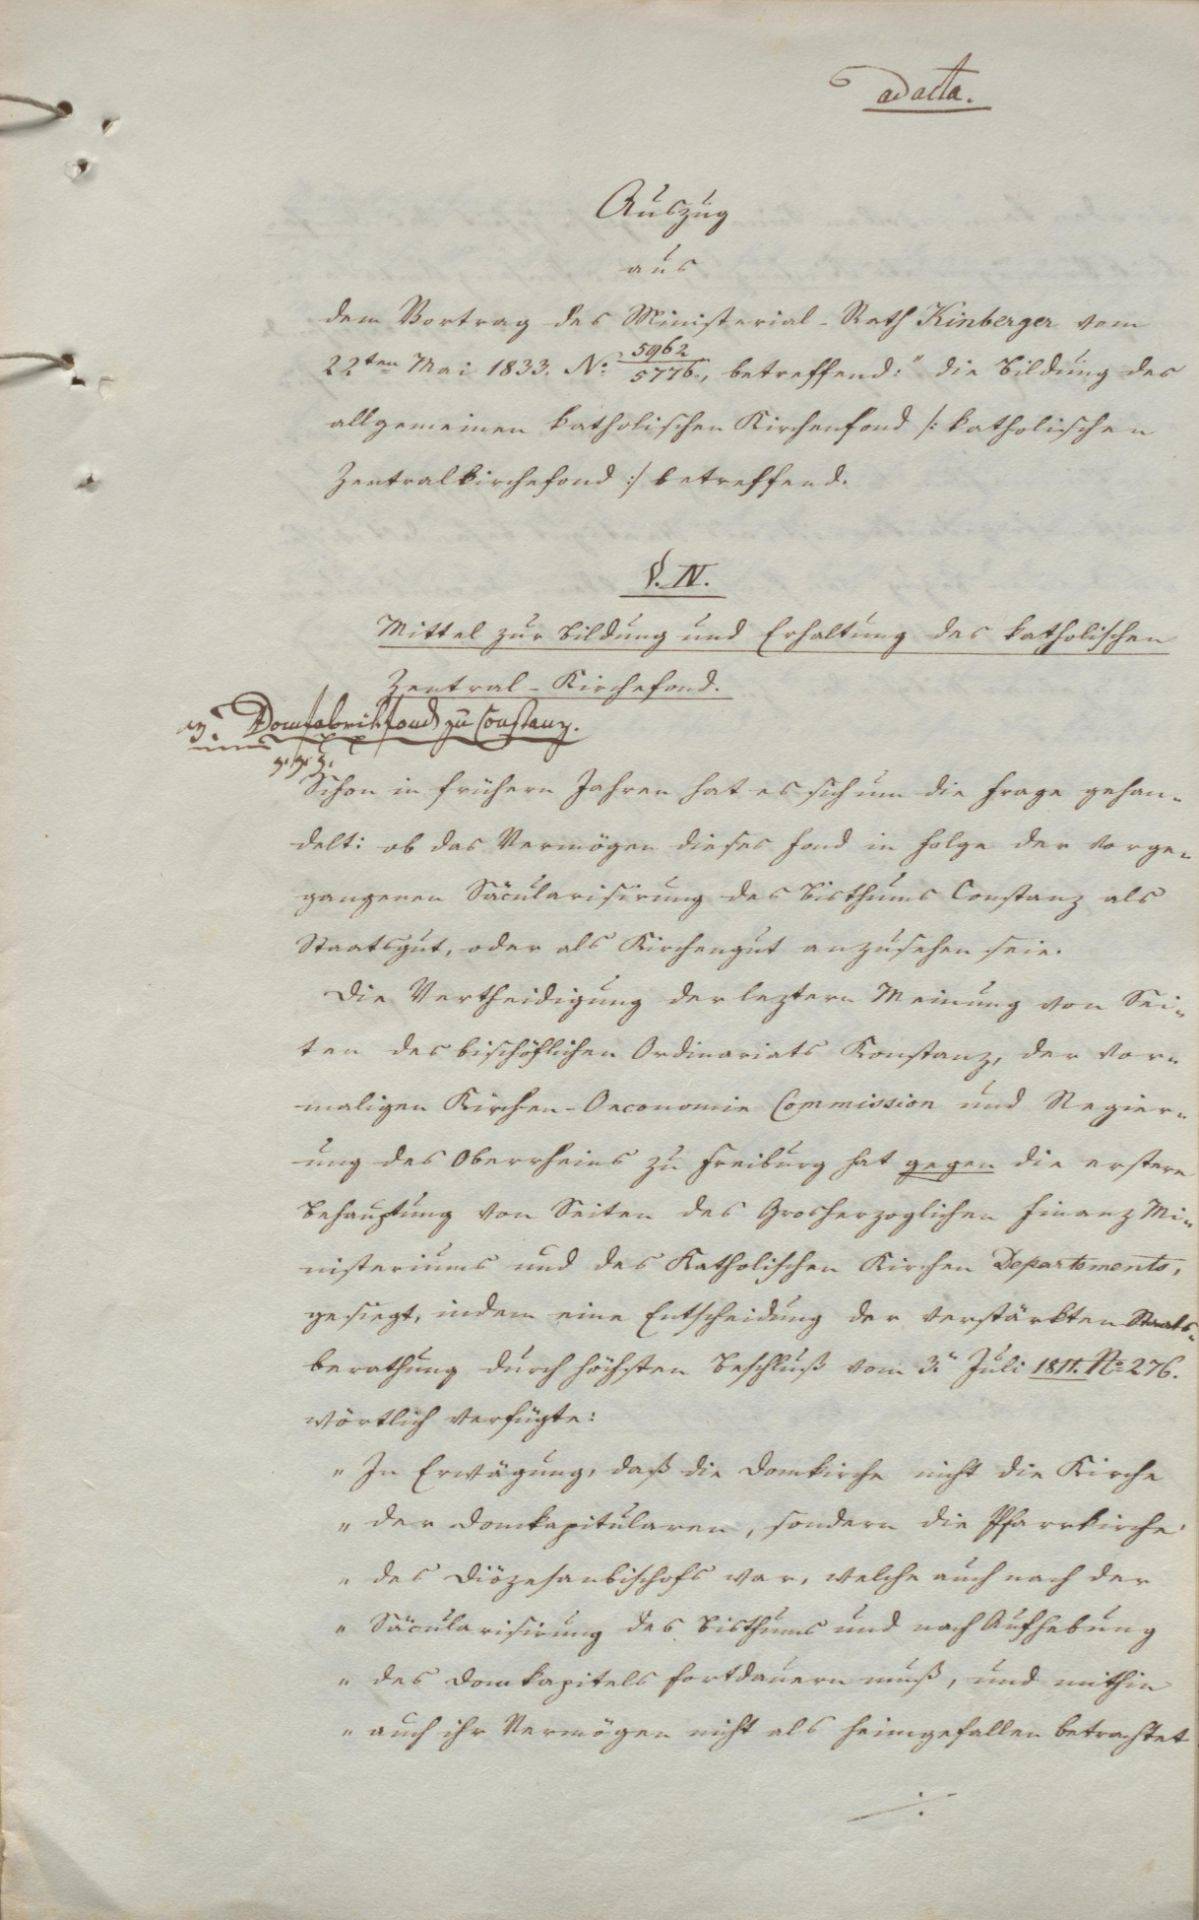 ad acta.
Auszug
aus
dem Vortrag des Ministerial-Rath Kinberger vom
22ten Mai 1833. No: 5962/5776., betreffend: "die Bildung des
allgemeinen katholischen Kirchenfond /: katholischen
Zentralkirchefond :/ betreffend.
§. IV.
Mittel zur Bildung und Erhaltung des katholischen
Zentral-Kirchefond.
Domfabrikfond zu Constanz.
Schon in frühern Jahren hat es sich um die Frage gehan-
delt: ob das Vermögen dieses Fond in Folge der vorge-
gangenen Säcularisirung des Bisthums Constanz als
Staatsgut, oder als Kirchengut anzusehen seie.
Die Vertheidigung der leztern Meinung von Sei-
ten des bischöflichen Ordinariats Konstanz, der vor-
maligen Kirchen-Oeconomie Commission und Regier-
ung des Oberrheins zu Freiburg hat gegen die erstere
Behauptung von Seiten des Grosherzoglichen Finanz Mi-
nisteriums und des Katholischen Kirchen Departements,
gesiegt, indem eine Entscheidung der verstärkten Staats-
berathung durch höchsten Beschluß vom 3n Juli 1811. No 276.
wörtlich verfügte:
" In Erwägung, daß die Domkirche nicht die Kirche
" der Domkapitularen, sondern die Pfarrkirche
" des Diözesanbischofs war, welche auch nach der
" Säcularisirung des Bisthums und nach Aufhebung
" des Domkapitels fortdauern muß, und mithin
" auch ihr Vermögen nicht als heimgefallen betrachtet